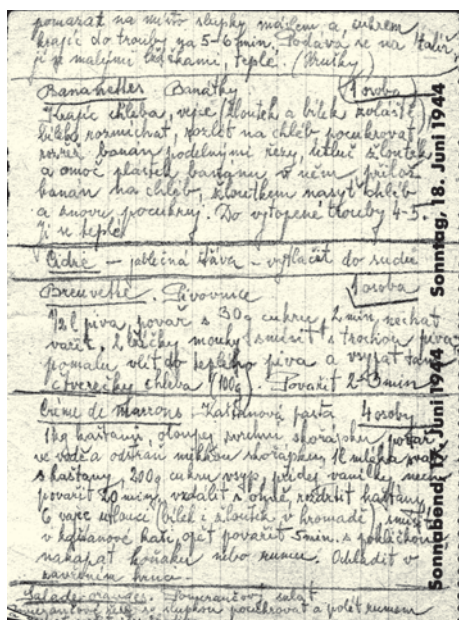 pomazat na místo slupky máslem a cukrem
krajíc do trouby na 5-6 min. Podává se na talíř,
jí se malými lžičkami, teplé. (Hrušky)
Bananettes. Banátky 1 osoba
Krajíc chleba, vejce (žloutek a bílek zvláště)
bílek rozmíchat, rozlít na chléb pocukrovat
banán podélnými řezy, utluč žloutek
a omoč plátek banánu v něm, přilož
banán na chléb, žloutkem nasyť chléb
a znovu pocukruj. Do vytopené trouby 4-5.
Jí se teplé
Cidre — jablečná šťáva — vytlačit do sudu
Breuvette. Pivovnice 1 osoba
1/2 l piva, povař s 30g cukru, 2 min. nechat
vařit. 2 lžičky mouky smísit s trochou piva
pomalu vlít do teplého piva a vsypat tam
čtverečky chleba (100g). Povařit 2-3 min
Crème de Marrons - Kaštanová pasta 4 osoby
1 kg kaštanů, oloupej svrchní skořápku, povař
ve vodě a odstraň měkkou skořápku, 1l mléka svař
s kaštany, 200g cukru vsyp, přidej vanilky, nech
povařit 20 min, vzdálit s ohně, rozdrtit kaštany,
6 vajec utlouci (bílek i žloutek v hromadě), smísit
v kaštanové kaši, opět povařit 5 min. s pokličkou
nakapat koňaku nebo rumu. Ochladit v
zavřeném hrnci.
Salade-oranges. Pomerančový salát
Pomerančové řezy se slupkou pocukrovat a polét rumem
Sonnabend, 17. Juni 1944 Sonntag, 18. Juni 1944